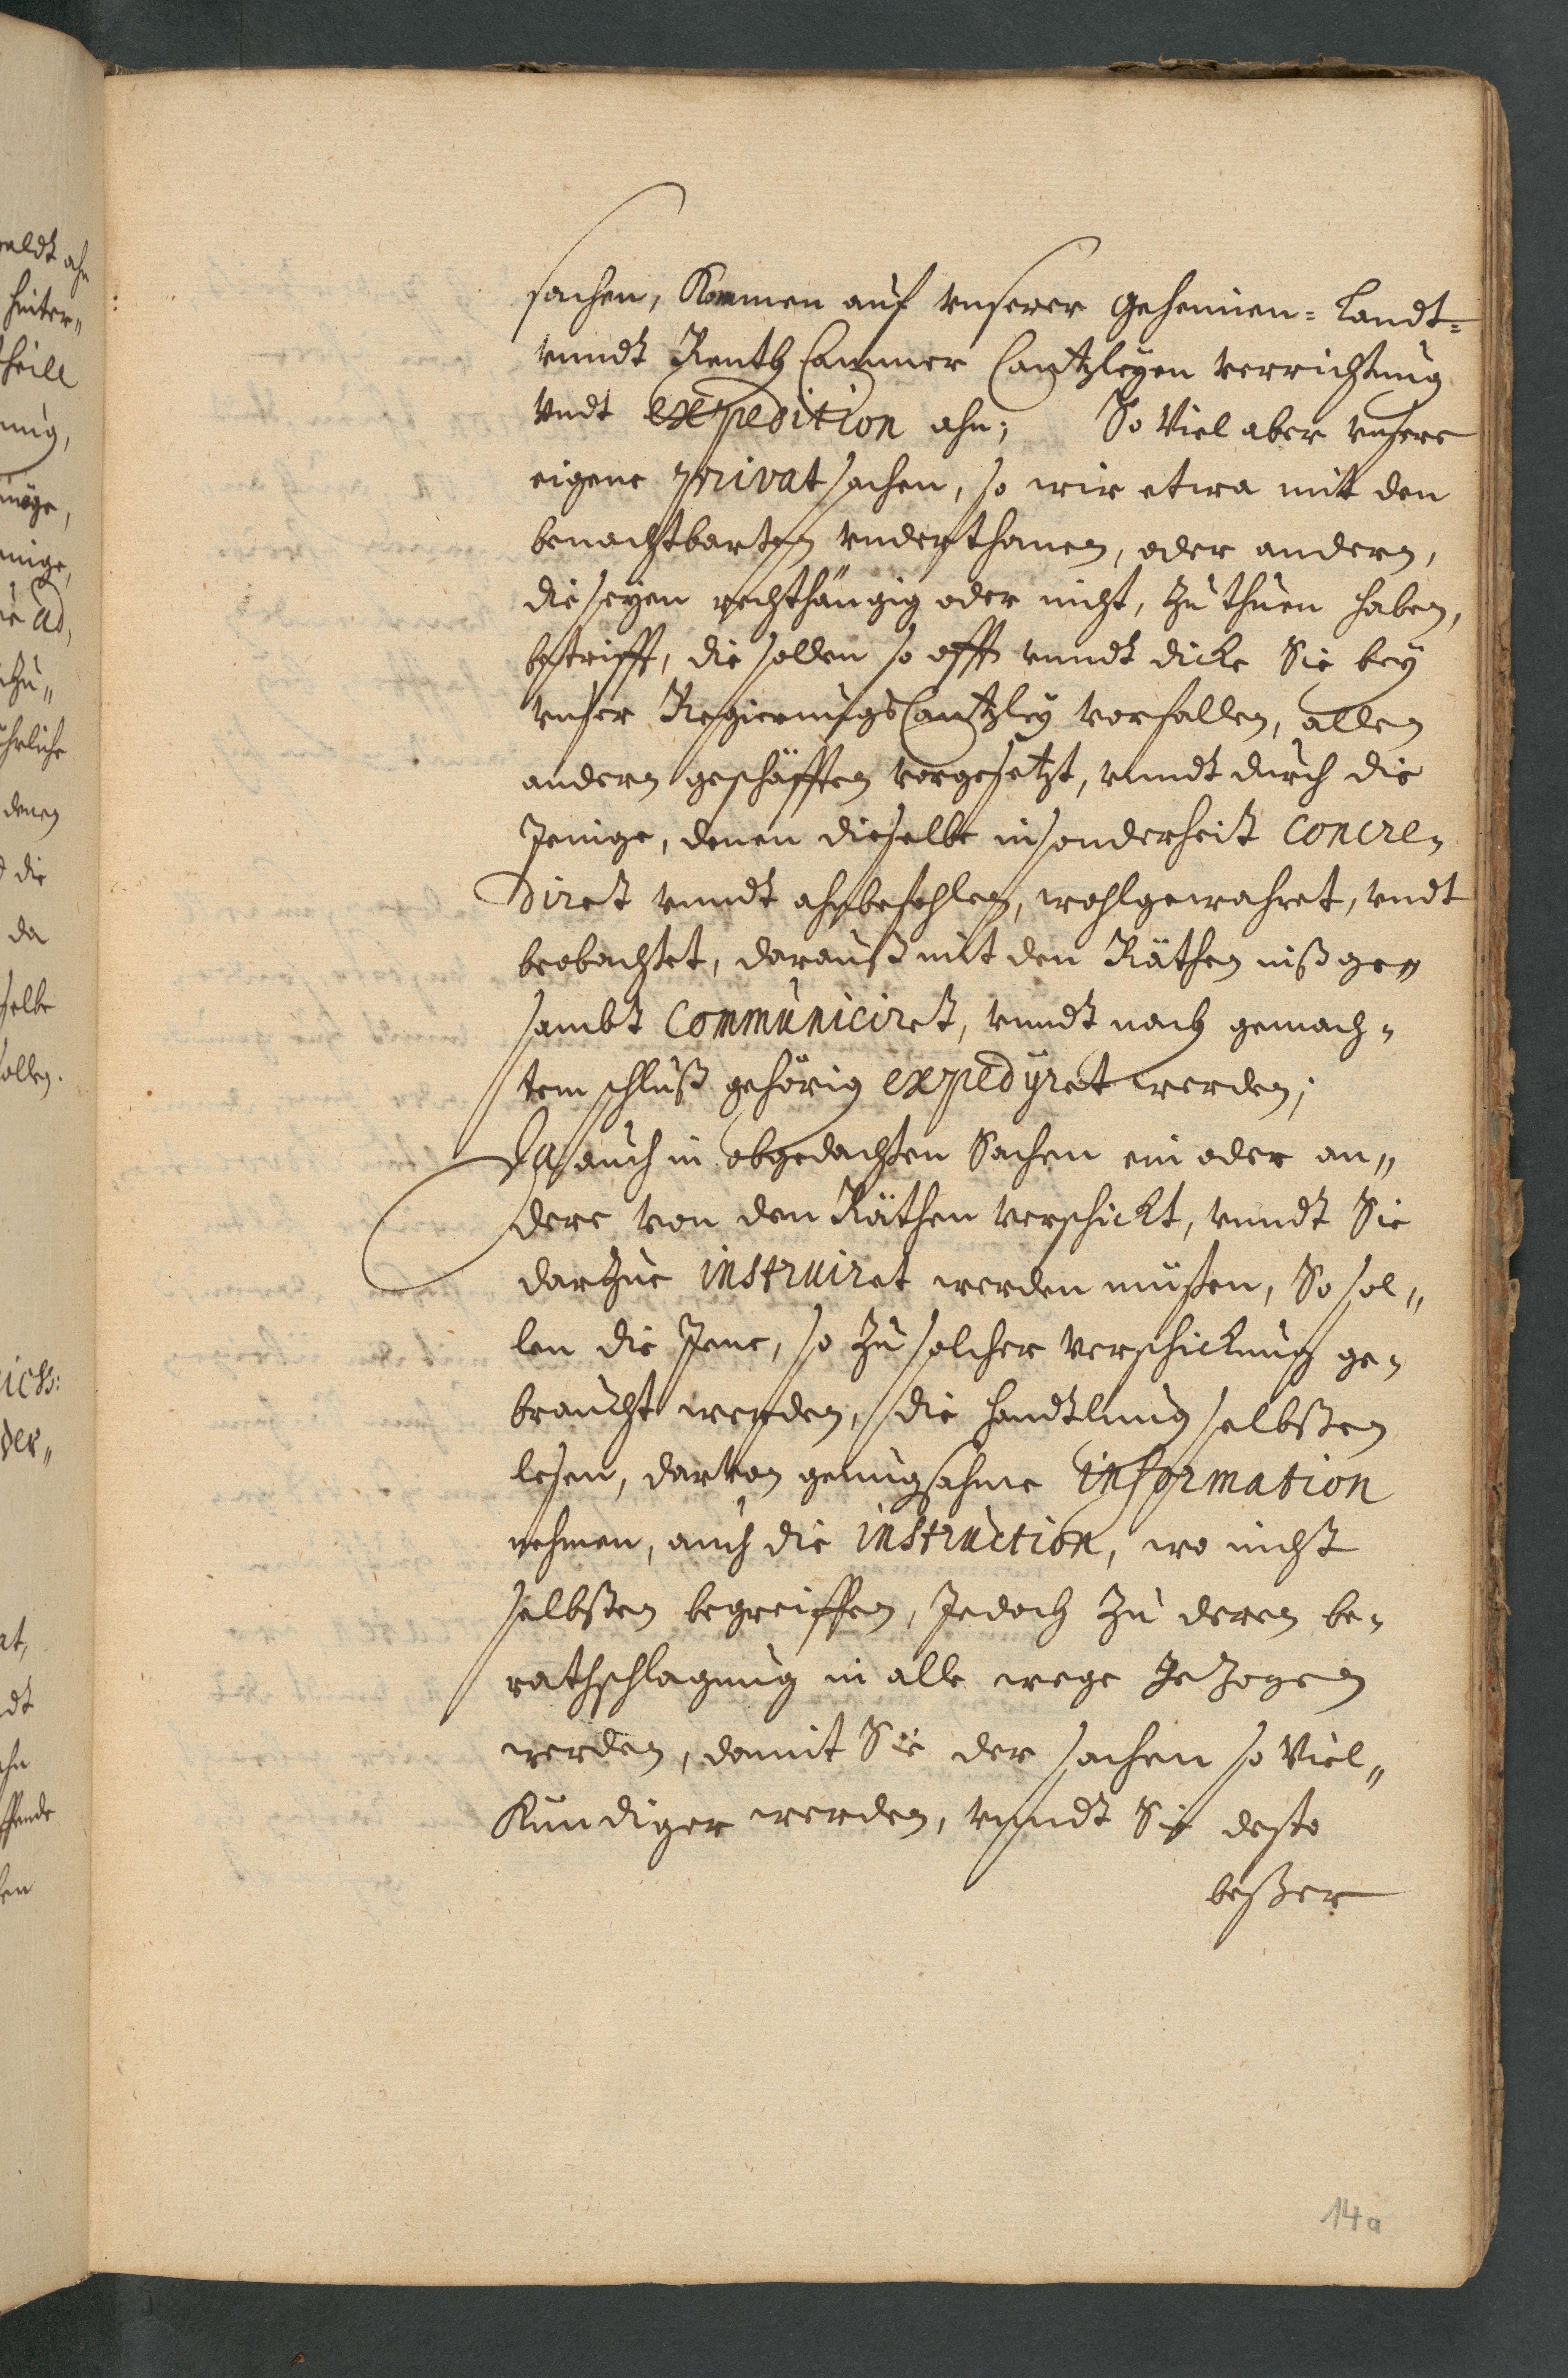 sachen, Kommen auf vnserer geheimen- Landt-
vnndt Renth Cammer Cantzleyen verrichtung
vndt expedition ahn; So Viel aber vnsere
eigene privat sachen, so wir etwa mit den
benachtbarten vnderthanen, oder andern,
die seyen rechthängig oder nicht, zu thuen haben,
betrifft, die sollen so offt vnndt dicke Sie bey
vnser Regierungs Cantzley vorfallen, allen
andern geschäfften vorgesetzt, vnndt durch die
Jenige, denen dieselbe insonderheit concre-
diret vnndt ahnbefohlen, wohlgewahret, vndt
beobachtet, darauß mit den Räthen inßge„
sambt communiciret, vnndt nach gemach-
tem schluß gehörig expedyret werden;
Da auch in obgedachten Sachen ein oder an„
dere von den Räthen verschickt, vnndt Sie
darzue instruiret werden müßen, So sol„
len die Jene, so zu solcher verschickung ge-
braucht werden, die handtlung selbsten
lesen, darvon genugsahme information
nehmen, auch die instruction, wo nicht
selbsten begreiffen, Jedoch zu deren be-
rathschlagung in alle wege gezogen
werden, damit Sie der sachen so Viel„
Kundiger werden, vnndt Sie desto
beßer
14a